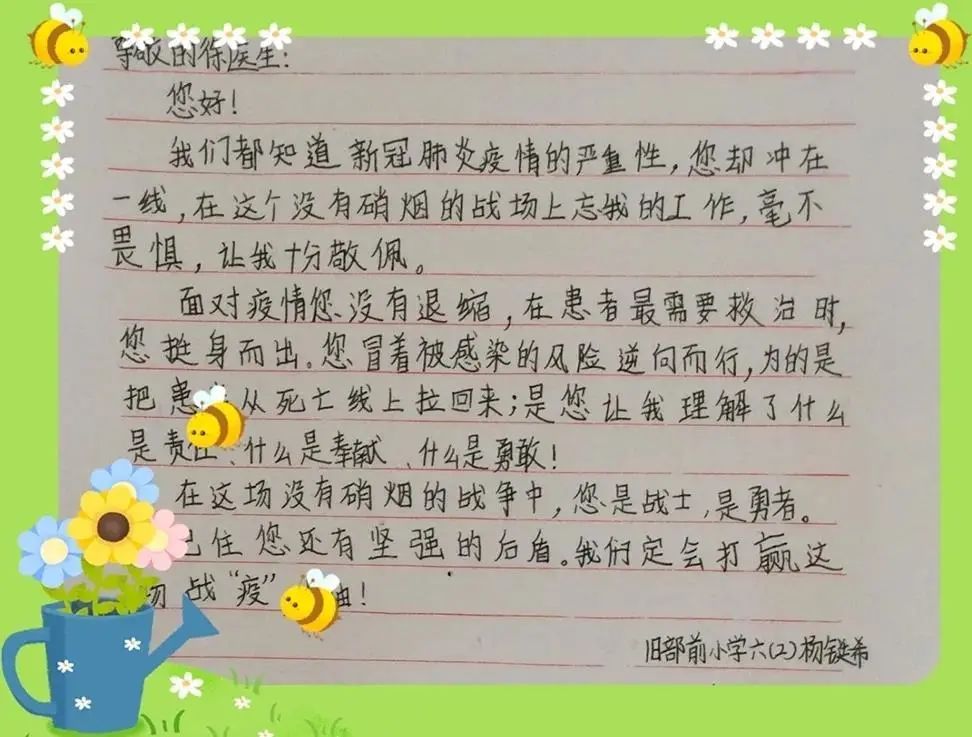 尊敬的徐医生：
您好！
我们都知道新冠肺炎疫情的严重性，您却冲在
一线，在这个没有硝烟的战场上忘我的工作，毫不
畏惧，让我十分敬佩。
面对疫情您没有退缩，在患者最需要救治时，
您挺身而出。您冒着被感染的风险逆向而行，为的是
把患从死亡线上拉回来；是您让我理解了什么
是责任、什么是奉献、什么是勇敢！
在这场没有硝烟的战争中，您是战士，是勇者。
住您还有坚强的后盾。我们定会打赢这
场战“疫”！
旧部前小学六（2）杨希